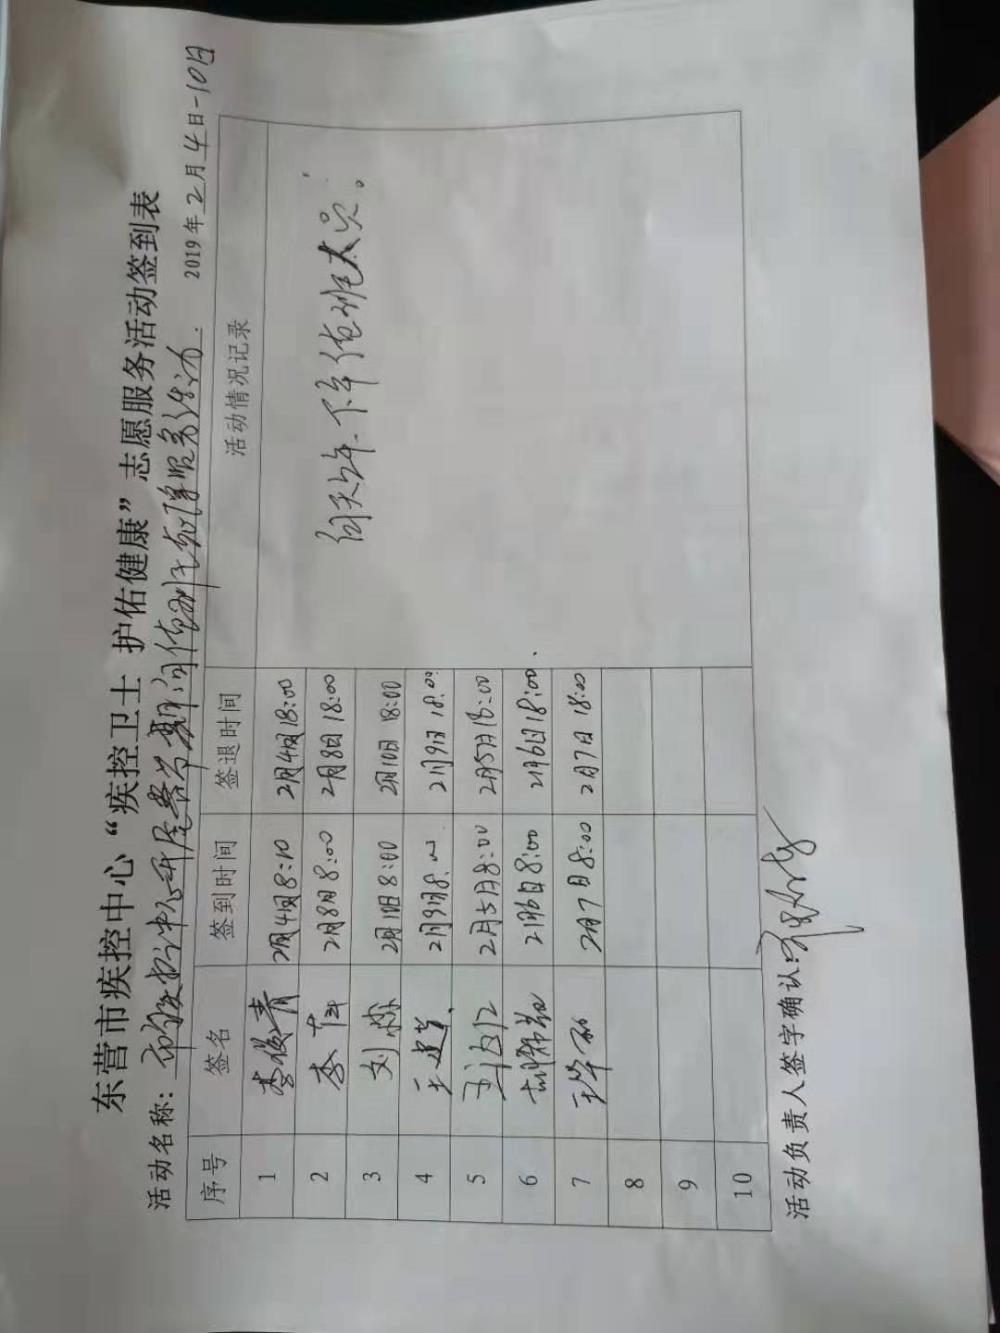 东营市疾控中心“疾控卫士 护佑健康”志愿服务活动签到表
活动名称：市疾控中心 春节期间值班 服务活动. 2019年2月4日-10日
序号 签名 签到时间 签退时间 活动情况记录
1 李俊青 2月4日8:10 2月4日18:00
2 李 2月8日8:00 2月8日18:00
3 刘淼 2月10日8:00 2月10日18:00
4 王 2月9日8:00 2月9日18:00
5 2月5日8:00 2月5日18:00
6 2月6日8:00 2月6日18:00.
7 王华 2月7日8:00 2月7日18:00
8
9
10
每天上午、下午值班人员。
活动负责人签字确认：